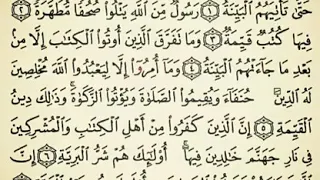 حَتَّىٰ تَأْتِيَهُمُ ٱلْبَيِّنَةُ ١ رَسُولٌ مِّنَ ٱللَّهِ يَتْلُوا۟ صُحُفًا مُّطَهَّرَةً ٢
فِيهَا كُتُبٌ قَيِّمَةٌ ٣ وَمَا تَفَرَّقَ ٱلَّذِينَ أُوتُوا۟ ٱلْكِتَٰبَ إِلَّا مِنۢ
بَعْدِ مَا جَآءَتْهُمُ ٱلْبَيِّنَةُ ٤ وَمَآ أُمِرُوٓا۟ إِلَّا لِيَعْبُدُوا۟ ٱللَّهَ مُخْلِصِينَ
لَهُ ٱلدِّينَ حُنَفَآءَ وَيُقِيمُوا۟ ٱلصَّلَوٰةَ وَيُؤْتُوا۟ ٱلزَّكَوٰةَ ۚ وَذَٰلِكَ دِينُ
ٱلْقَيِّمَةِ ٥ إِنَّ ٱلَّذِينَ كَفَرُوا۟ مِنْ أَهْلِ ٱلْكِتَٰبِ وَٱلْمُشْرِكِينَ
فِى نَارِ جَهَنَّمَ خَٰلِدِينَ فِيهَآ ۚ أُو۟لَٰٓئِكَ هُمْ شَرُّ ٱلْبَرِيَّةِ ٦ إِنَّ